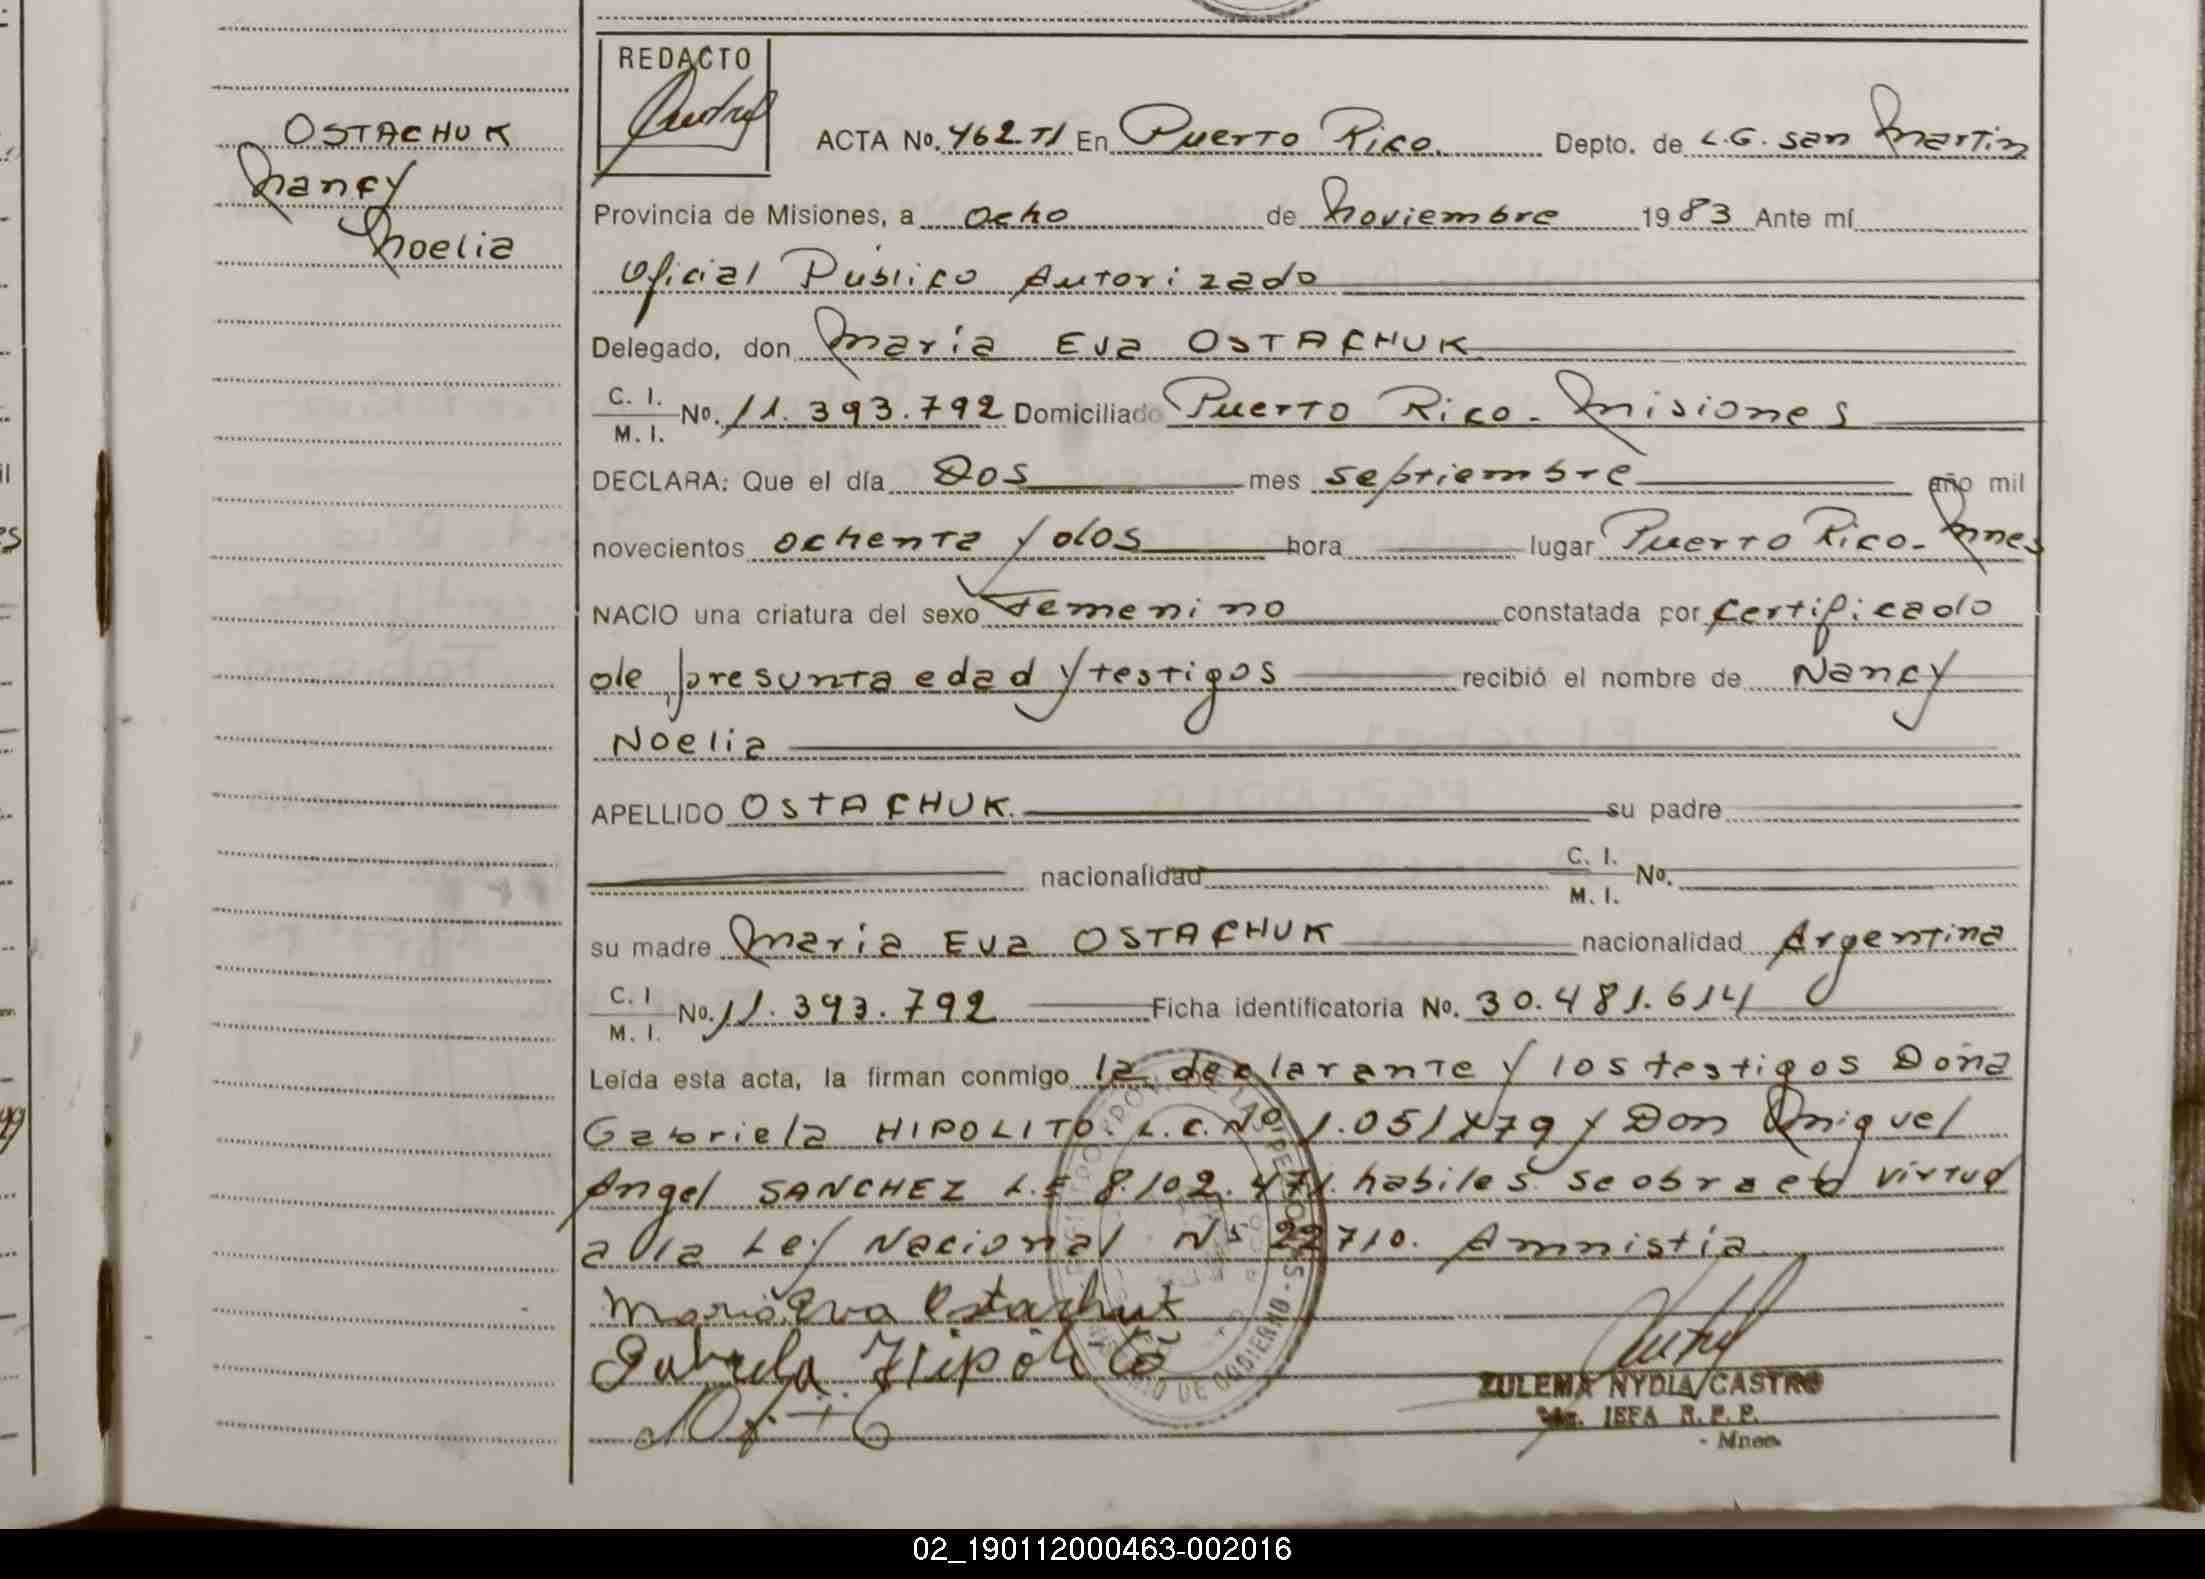 OSTACHUK
Nancy
Noelia
REDACTO
ACTA No. 462 TI En Puerto Rico. Depto. de L.G. san Martin
Provincia de Misiones, a ocho de Noviembre 1983 Ante mí
Oficial Público Autorizado
Delegado, don María Eva OSTACHUK
C. I.
M. I. No. 11.393.792 Domiciliado Puerto Rico - Misiones
DECLARA: Que el día Dos mes septiembre año mil
novecientos ochenta y dos hora lugar Puerto Rico - Mnes
NACIO una criatura del sexo Femenino constatada por certificado
de presunta edad y testigos recibió el nombre de Nancy
Noelia
APELLIDO OSTACHUK. su padre
nacionalidad C. I.
M. I. No.
su madre María Eva OSTACHUK nacionalidad Argentina
C. I
M. I. No. 11.393.792 Ficha identificatoria No. 30.481.614
Leída esta acta, la firman conmigo la declarante y los testigos Doña
Gabriela HIPOLITO. L.C. Nº 1.051.479 y Don Miguel
Angel SANCHEZ L.E 8.102.471. habiles se obra en virtud
a la Ley Nacional Nº 22710. Amnistía
María Eva Ostachuk
Gabriela Hipólito
ZULEMA NYDIA CASTRO
JEFA R.P.P.
- Mnes.
02_190112000463-002016